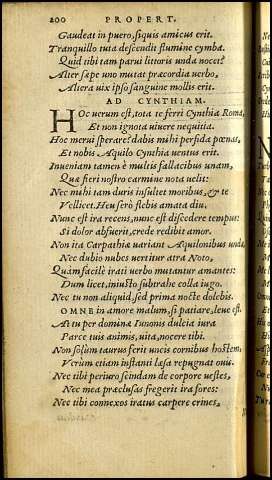 200 PROPERT.
Gaudeat in puero, siquis amicus erit.
Tranquillo tuta descendis flumine cymba.
Quid tibi tam parui littoris unda nocet?
Alter sæpe uno mutat præcordia uerbo,
Altera uix ipso sanguine mollis erit.
AD CYNTHIAM.
HOc uerum est, tota te ferri Cynthia Roma,
Et non ignota uiuere nequitia.
Hoc merui sperare? dabis mihi perfida pœnas,
Et nobis Aquilo Cynthia uentus erit.
Inueniam tamen è multis fallacibus unam,
Quæ fieri nostro carmine nota uelit:
Nec mihi tam duris insultet moribus, & te
Vellicet. Heu serò flebis amata diu.
Nunc est ira recens, nunc est discedere tempus:
Si dolor abfuerit, crede redibit amor.
Non ita Carpathia uariant Aquilonibus undæ,
Nec dubio nubes uertitur atra Noto,
Quàm facilè irati uerbo mutantur amantes:
Dum licet, iniusto subtrahe colla iugo.
Nec tu non aliquid, sed prima nocte dolebis.
OMNE in amore malum, si patiare, leue est.
At tu per dominæ Iunonis dulcia iura
Parce tuis animis, uita, nocere tibi.
Non solùm taurus ferit uncis cornibus hostem,
Verùm etiam instanti læsa repugnat ouis.
Nec tibi periuro scindam de corpore uestes,
Nec mea præclusas fregerit ira fores:
Nec tibi connexos iratus carpere crines,